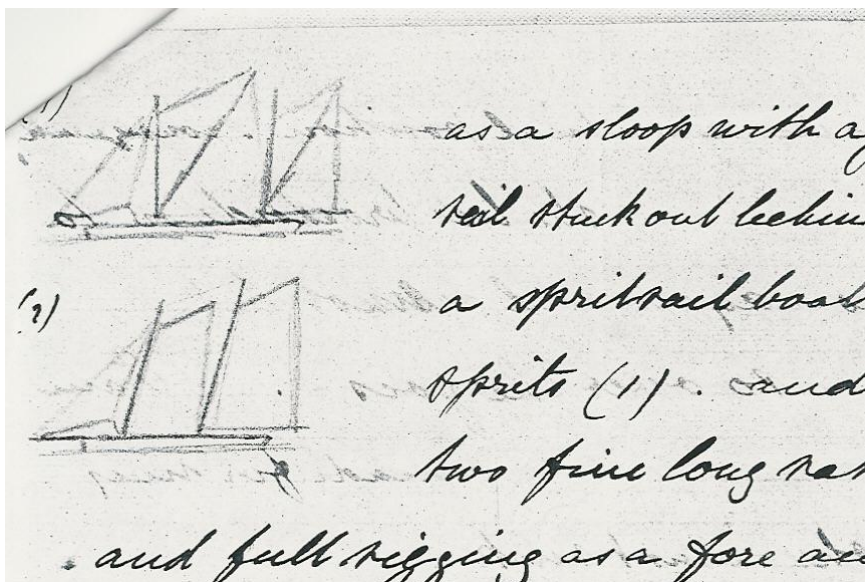 (1)
as a sloop with a
sail stuck out behin
(2)
a spritsail boat
sprits (1). and
two fine long
and full rigging as a fore an